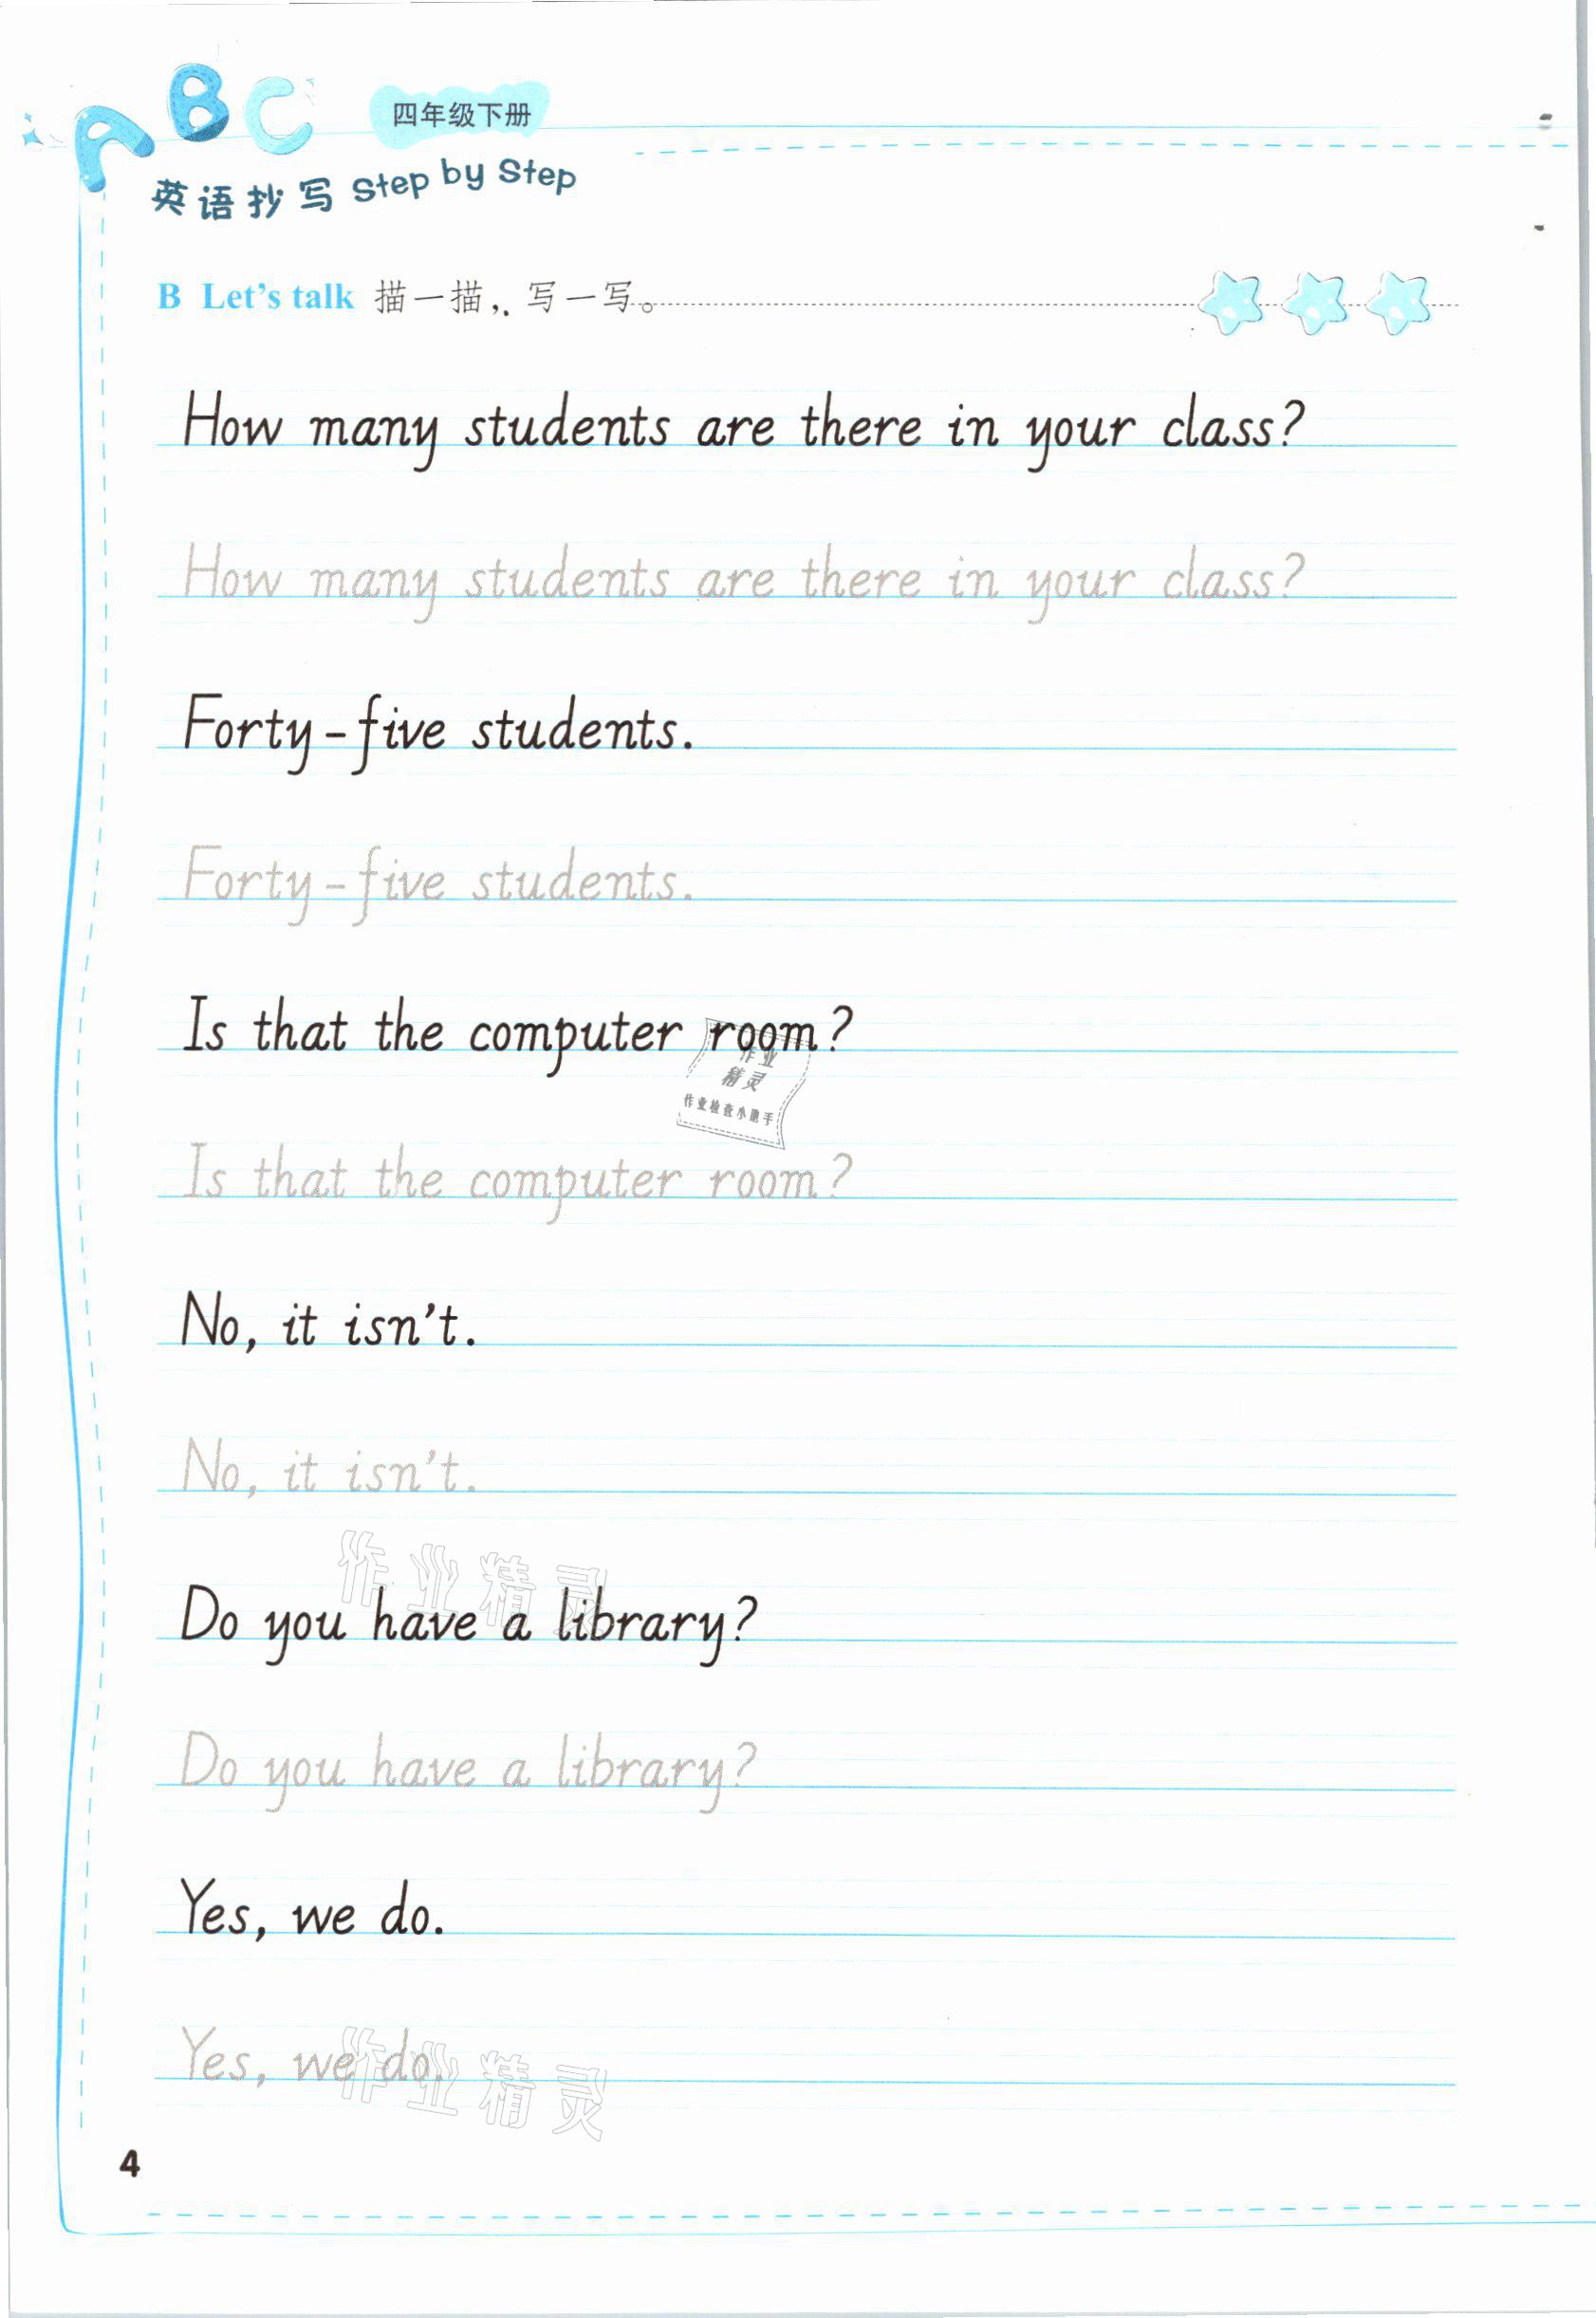 ABC
四年级下册
英语抄写 Step by Step
B Let's talk 描一描，写一写。
How many students are there in your class?
How many students are there in your class?
Forty-five students.
Forty-five students.
Is that the computer room?
作业
精灵
作业检查小助手
Is that the computer room?
No, it isn't.
No, it isn't.
作业精灵
Do you have a library?
Do you have a library?
Yes, we do.
Yes, we do.
作业精灵
4